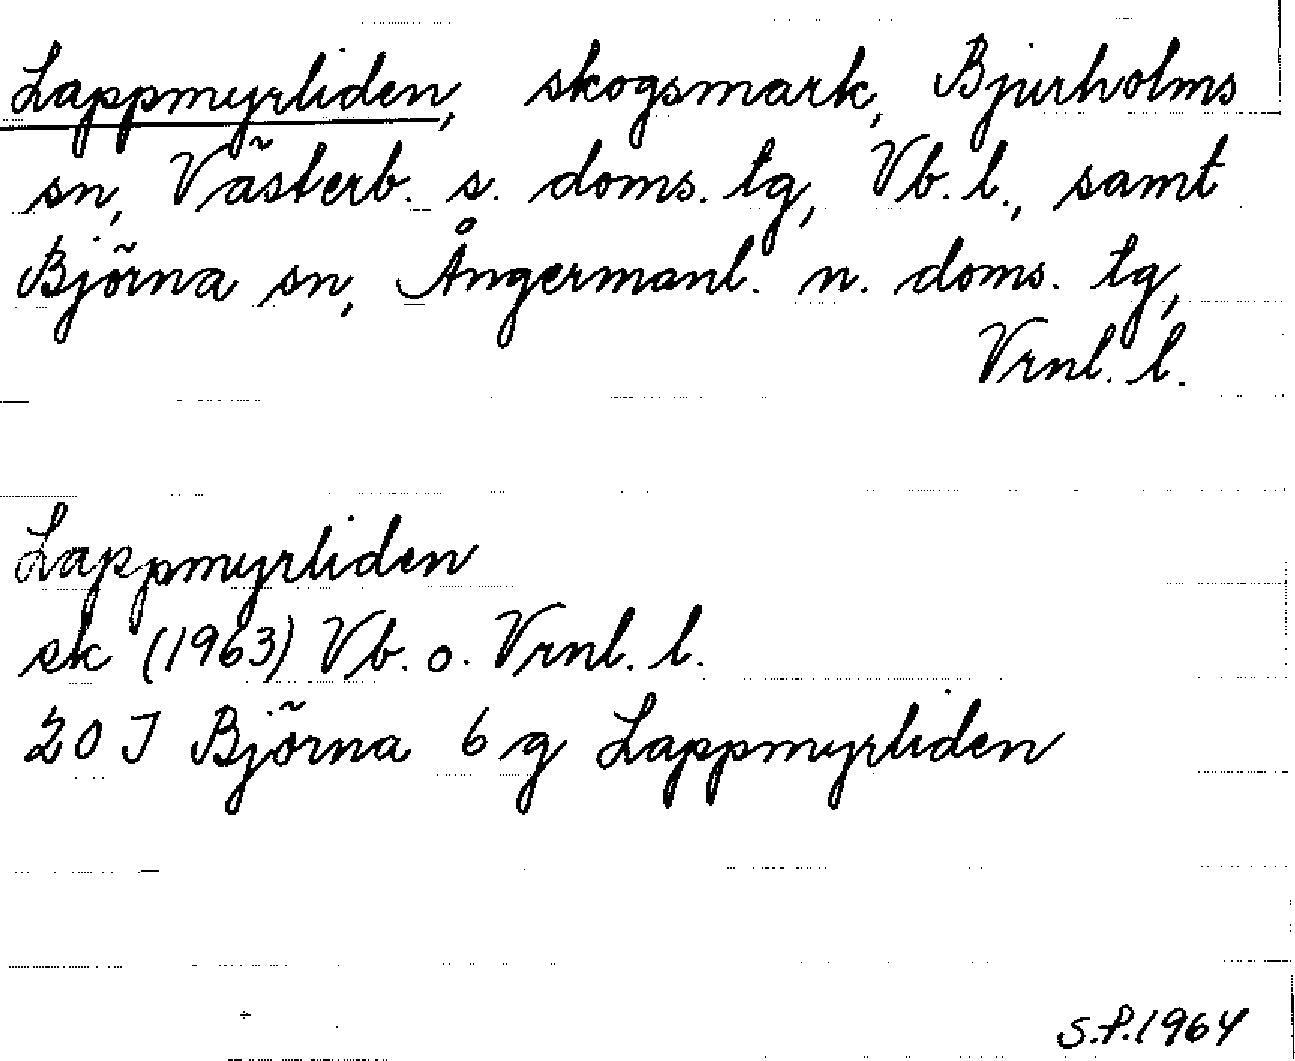 Lappmyrliden, skogsmark, Bjurholms
sn, Västerb. s. doms. tg, Vb. l., samt
Björna sn, Ångermanl. n. doms. tg,
Vrnl. l.
Lappmyrliden
sk (1963) Vb. o. Vrnl. l.
20 J Björna 6 g Lappmyrliden
S.P.1964